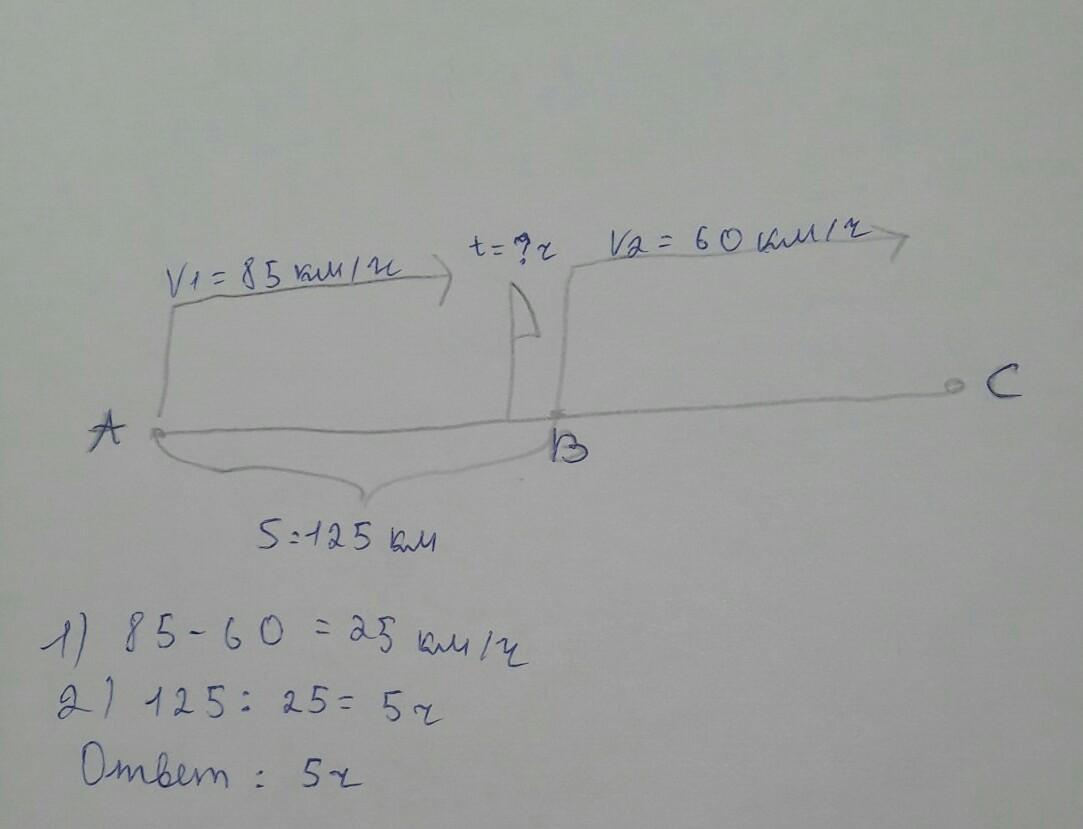 V1 = 85 км/ч
t = ? ч
V2 = 60 км/ч
A
B
C
S = 125 км
1) 85 - 60 = 25 км/ч
2) 125 : 25 = 5 ч
Ответ : 5 ч